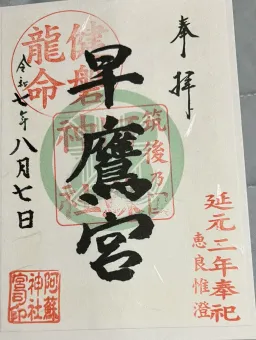 奉拝
延元二年奉祀
恵良惟澄
早鷹宮
筑後乃
神社
健磐
龍命
令和七年八月七日
阿蘇
神社
宮印